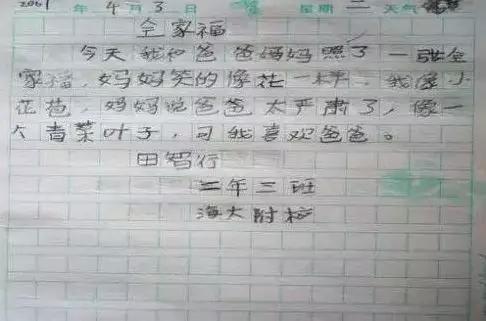 2001年4月3日 星期二 天气
全家福
今天我和爸爸妈妈照了一张全
家福，妈妈笑的像花一样，我像小
花苞，妈妈说爸爸太严肃了，像一
个青菜叶子，可我喜欢爸爸。
田智行
二年三班
海大附校